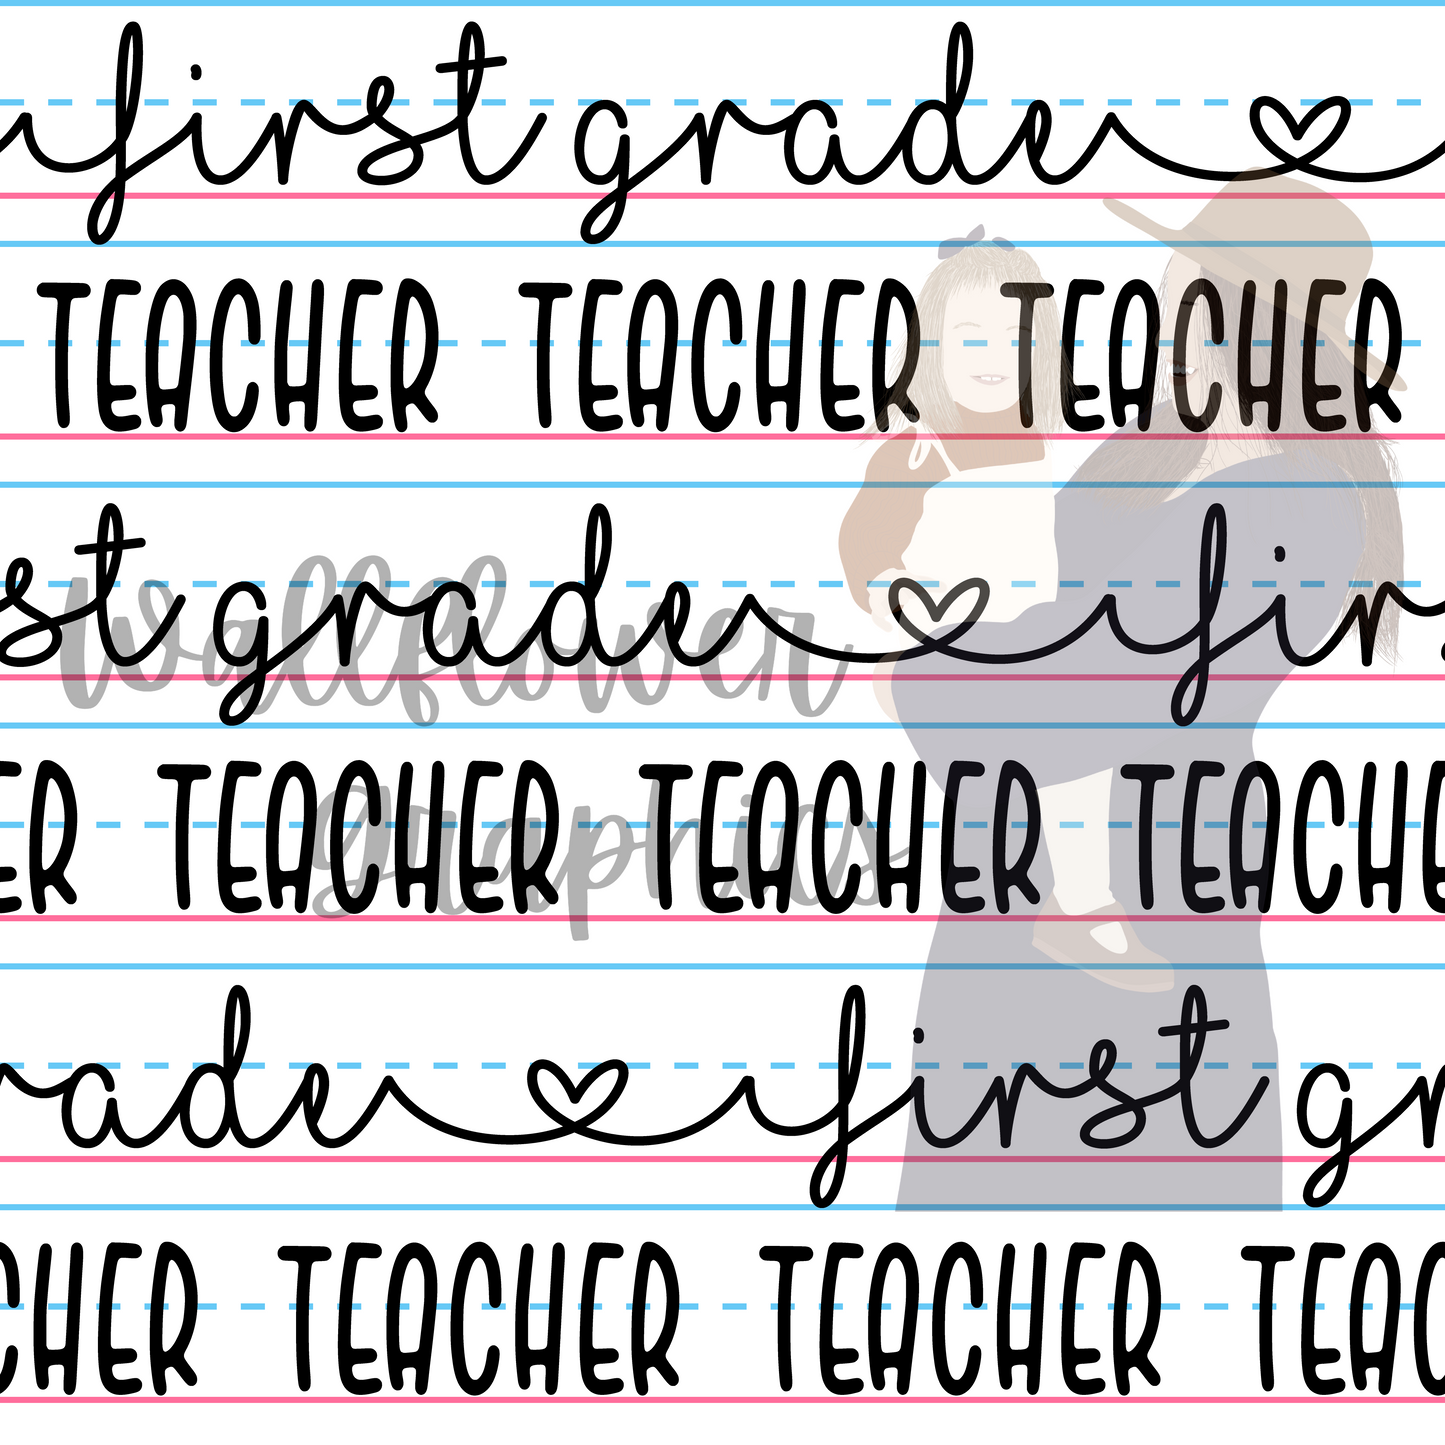 first grade
TEACHER TEACHER TEACHER
st grade fir
wallflower
ER TEACHER TEACHER TEACHE
graphics
rade first gr
CHER TEACHER TEACHER TEAC